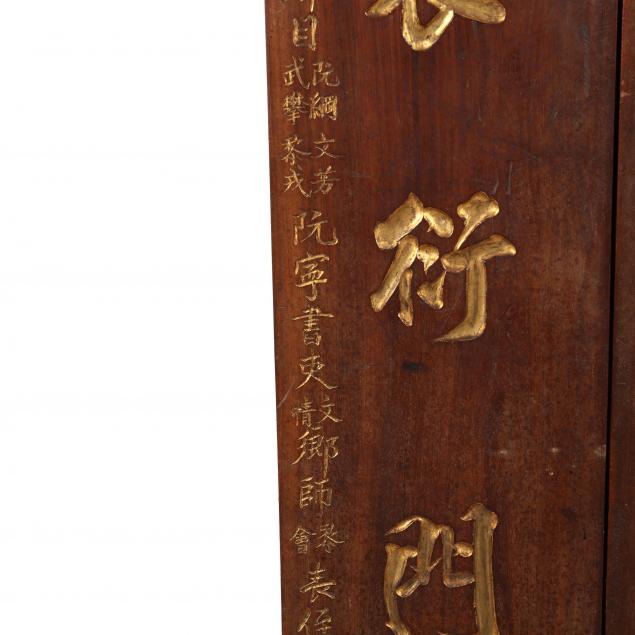 衍門
目阮綱文芳武攀黎戎阮寧書吏文情鄉師黎會表侄